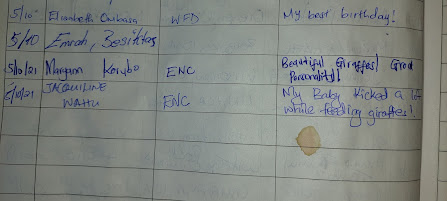 5/10 Elizabeth WFD My best birthday!
5/10 Emrah, Besiktas
5/10/21 Maryam ENC Beautiful Giraffes! Great
Personality!
5/10/21 JACQUILINE ENC My Baby kicked a lot
WAHU while feeding giraffes!